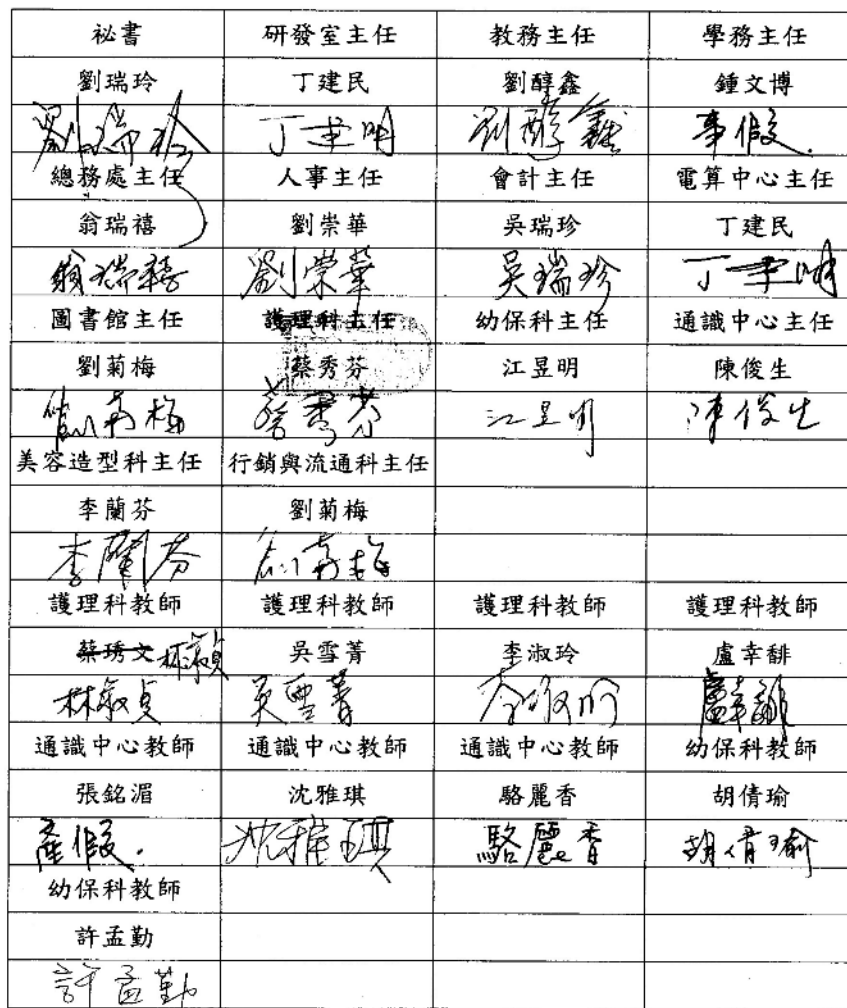 祕書 研發室主任 教務主任 學務主任
劉瑞玲 丁建民 劉醇鑫 鍾文博
劉瑞玲 丁建明 劉醇鑫 事假.
總務處主任 人事主任 會計主任 電算中心主任
翁瑞禧 劉崇華 吳瑞珍 丁建民
翁瑞禧 劉崇華 吳瑞珍 丁建明
圖書館主任 護理科主任 幼保科主任 通識中心主任
劉菊梅 蔡秀芬 江昱明 陳俊生
劉菊梅 蔡秀芬 江昱明 陳俊生
美容造型科主任 行銷與流通科主任
李蘭芬 劉菊梅
李蘭芬 劉菊梅
護理科教師 護理科教師 護理科教師 護理科教師
蔡琇文 林淑貞 吳雪菁 李淑玲 盧幸馡
林淑貞 吳雪菁 李淑玲 盧幸馡
通識中心教師 通識中心教師 通識中心教師 幼保科教師
張銘湄 沈雅琪 駱麗香 胡倩瑜
產假. 沈雅琪 駱麗香 胡倩瑜
幼保科教師
許孟勤
許孟勤